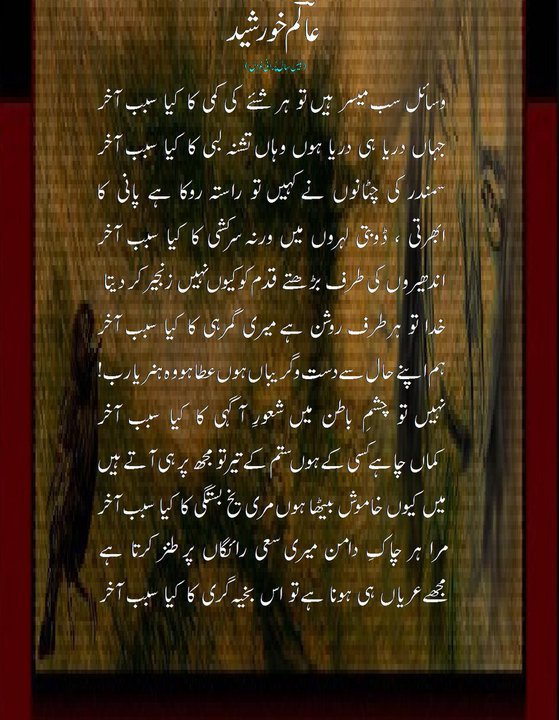 عالم خورشید
وسائل سب میسر ہیں تو ہر شئے کی کمی کا کیا سبب آخر
جہاں دریا ہی دریا ہوں وہاں تشنہ لبی کا کیا سبب آخر
سمندر کی چٹانوں نے کہیں تو راستہ روکا ہے پانی کا
ابھرتی ، ڈوبتی لہروں میں ورنہ سرکشی کا کیا سبب آخر
اندھیروں کی طرف بڑھتے قدم کو کیوں نہیں زنجیر کر دیتا
خدا تو ہر طرف روشن ہے میری گمرہی کا کیا سبب آخر
ہم اپنے حال سے دست و گریباں ہوں عطا ہو وہ ہنر یا رب!
نہیں تو چشمِ باطن میں شعورِ آگہی کا کیا سبب آخر
کماں چاہے کسی کے ہوں ستم کے تیر تو مجھ پر ہی آتے ہیں
میں کیوں خاموش بیٹھا ہوں مری یخ بستگی کا کیا سبب آخر
مرا ہر چاکِ دامن میری سعی رائگاں پر طنز کرتا ہے
مجھے عریاں ہی ہونا ہے تو اس بخیہ گری کا کیا سبب آخر